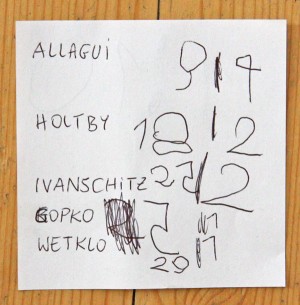 ALLAGUI 9 | 4
HOLTBY 18 | 2
IVANSCHITZ 25 / 2
GOPKO
WETKLO 29